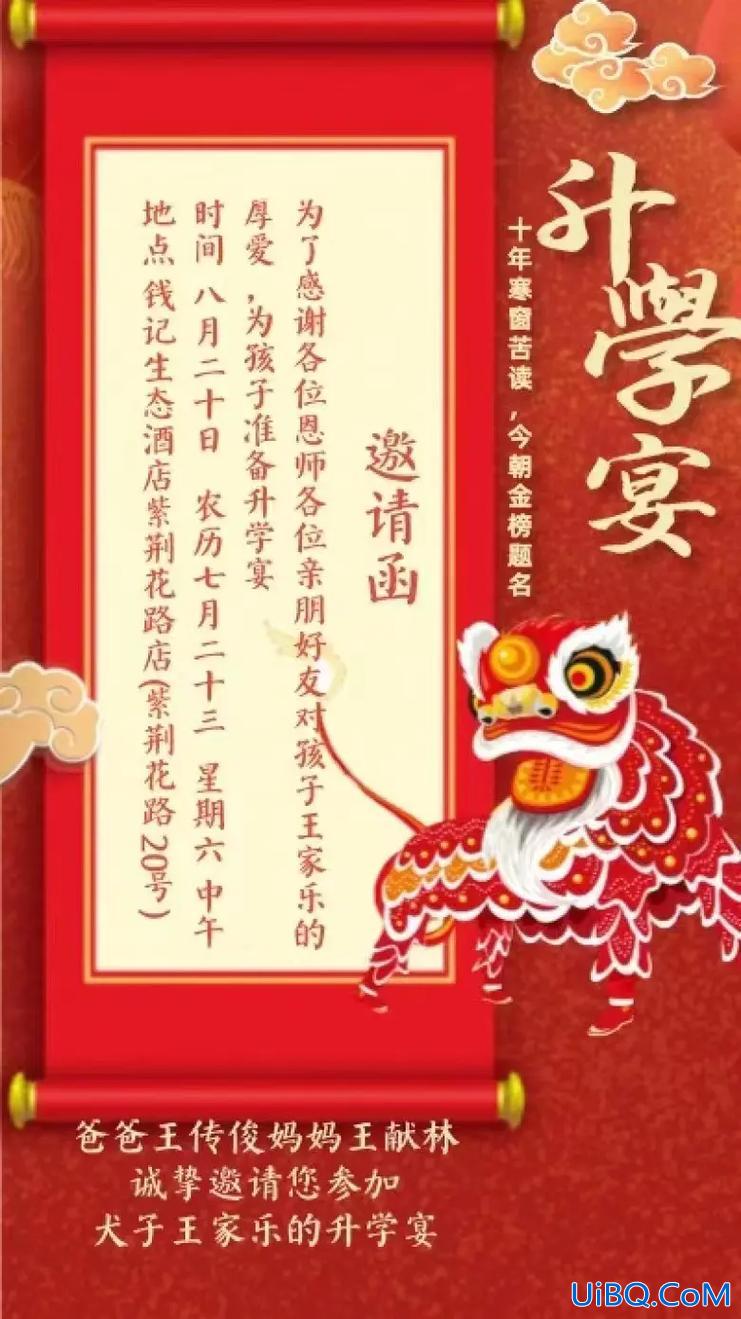 升學宴
十年寒窗苦读,今朝金榜题名
邀请函
为了感谢各位恩师各位亲朋好友对孩子王家乐的
厚爱,为孩子准备升学宴
时间 八月二十日 农历七月二十三 星期六 中午
地点 钱记生态酒店紫荆花路店(紫荆花路20号)
爸爸王传俊妈妈王献林
诚挚邀请您参加
犬子王家乐的升学宴
UiBQ.CoM